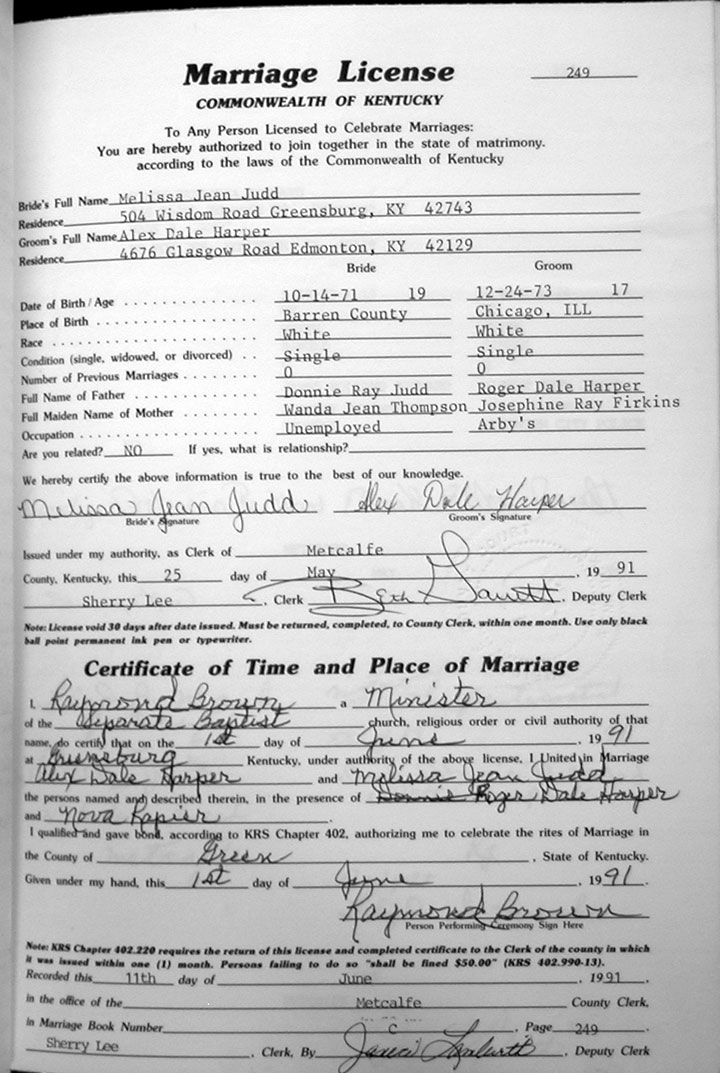 Marriage License 249
COMMONWEALTH OF KENTUCKY
To Any Person Licensed to Celebrate Marriages:
You are hereby authorized to join together in the state of matrimony.
according to the laws of the Commonwealth of Kentucky
Bride's Full Name Melissa Jean Judd
Residence 504 Wisdom Road Greensburg, KY 42743
Groom's Full Name Alex Dale Harper
Residence 4676 Glasgow Road Edmonton, KY 42129
Bride Groom
Date of Birth / Age 10-14-71 19 12-24-73 17
Place of Birth Barren County Chicago, ILL
Race White White
Condition (single, widowed, or divorced) Single Single
Number of Previous Marriages 0 0
Full Name of Father Donnie Ray Judd Roger Dale Harper
Full Maiden Name of Mother Wanda Jean Thompson Josephine Ray Firkins
Occupation Unemployed Arby's
Are you related? NO If yes, what is relationship?
We hereby certify the above information is true to the best of our knowledge.
Melissa Jean Judd Alex Dale Harper
Bride's Signature Groom's Signature
Issued under my authority, as Clerk of Metcalfe
County, Kentucky, this 25 day of May, 19 91
Sherry Lee, Clerk Beth Garrett, Deputy Clerk
Note: License void 30 days after date issued. Must be returned, completed, to County Clerk, within one month. Use only black
ball point permanent ink pen or typewriter.
Certificate of Time and Place of Marriage
I, Raymond Brown a Minister
of the Separate Baptist church, religious order or civil authority of that
name, do certify that on the 1st day of June, 19 91
at Greensburg Kentucky, under authority of the above license, I United in Marriage
Alex Dale Harper and Melissa Jean Judd
the persons named and described therein, in the presence of Donnie Roger Dale Harper
and Nova Rapier.
I qualified and gave bond, according to KRS Chapter 402, authorizing me to celebrate the rites of Marriage in
the County of Green, State of Kentucky.
Given under my hand, this 1st day of June, 19 91.
Raymond Brown
Person Performing Ceremony Sign Here
Note: KRS Chapter 402.220 requires the return of this license and completed certificate to the Clerk of the county in which
it was issued within one (1) month. Persons failing to do so "shall be fined $50.00" (KRS 402.990-13).
Recorded this 11th day of June, 1991.
in the office of the Metcalfe County Clerk,
in Marriage Book Number C, Page 249.
Sherry Lee, Clerk, By Deputy Clerk